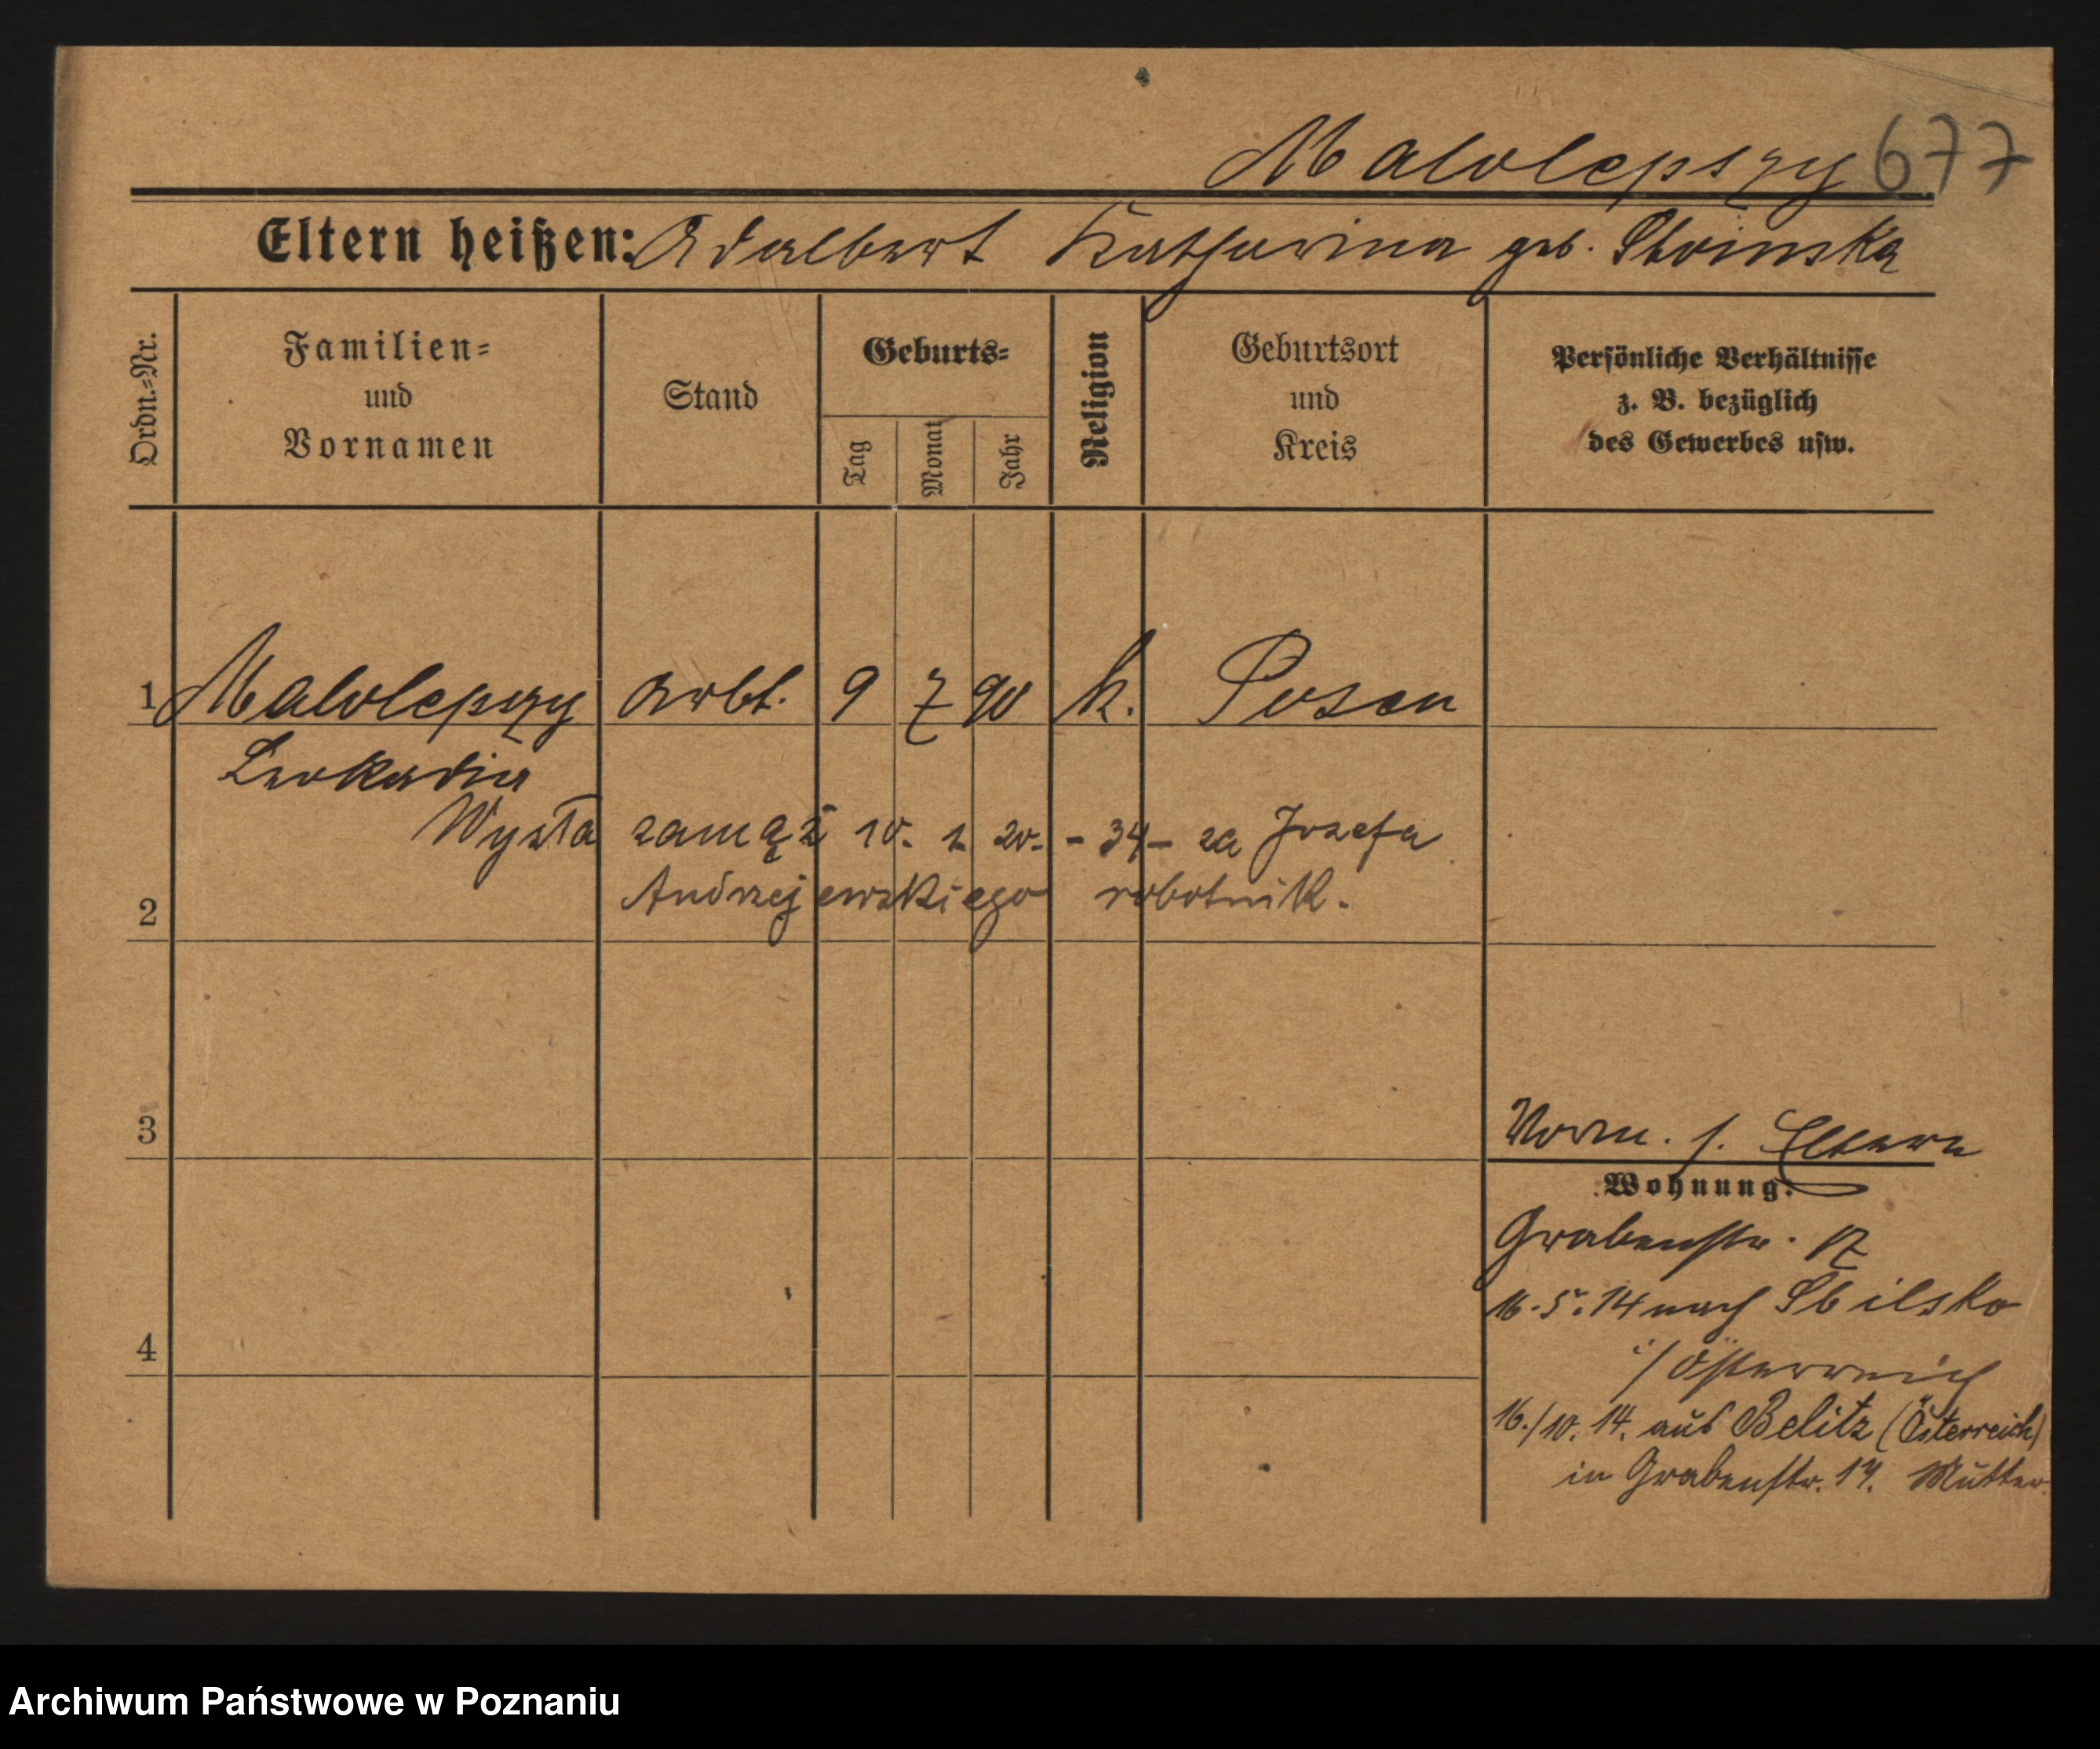 Malolepszy 677
Eltern heißen: Adalbert Katharina geb. Stoinska
Ordn.=Nr.
Familien=
und
Vornamen
Stand
Geburts=
Tag
Monat
Jahr
Religion
Geburtsort
und
Kreis
Persönliche Verhältnisse
z. B. bezüglich
des Gewerbes usw.
1 Malolepszy Arbt. 9 7 90 k. Posen
Leokadia
Wyszła zamąż 10. 1. 20. - 34 - za Jozefa
2 Andrzejewskiego robotnik.
3 Vorm. s. Eltern
Wohnung:
Grabenstr. 17
16.5.14 nach
4 i/ Österreich
16./10. 14. aus Belitz (Österreich)
in Grabenstr. 17. Mutter.
Archiwum Państwowe w Poznaniu